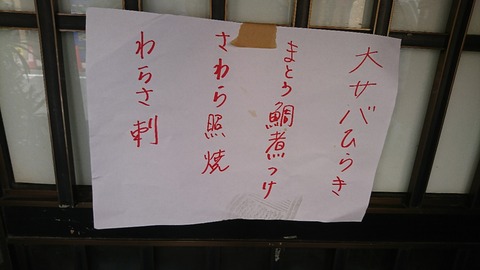 大サバひらき
まとう鯛煮つけ
さわら照焼
わらさ刺